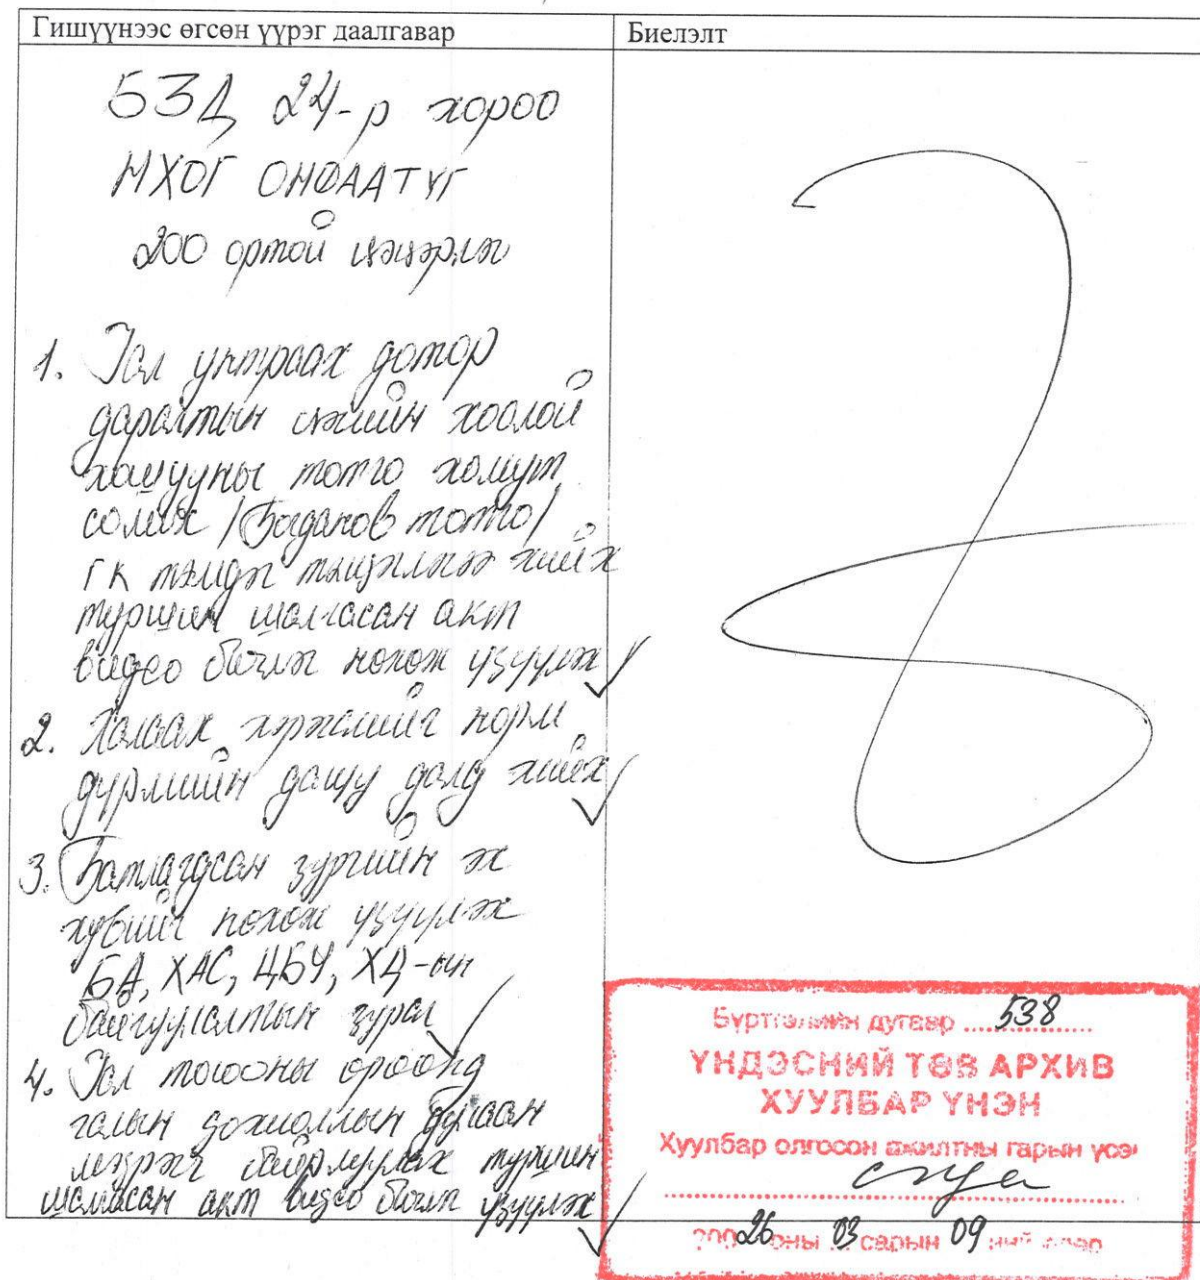 Гишүүнээс өгсөн үүрэг даалгавар
Биелэлт
БЗД 24-р хороо
МХОГ ОНӨААТҮГ
200 ортой цэцэрлэг
1. Гал унтраах дотор
даралтын усны хоолой
хошууны тотго хомут
солих /Богданов тотго/
ГК тэмдэг тэмдэглэгээ хийх
туршин шалгасан акт
видео бичлэг нөхөж үзүүлэх
2. Халаах хэрэгслийг норм
дүрмийн дагуу далд хийх
3. Батлагдсан зургийн эх
хувийг нөхөж үзүүлэх
БА, ХАС, ЦБУ, ХД-ын
байгууламжийн зураг
4. Гал тогооны өрөөнд
галын дохиоллын дулаан
мэдрэгч байрлуулах туршин
шалгасан акт видео бичлэг үзүүлэх
Бүртгэлийн дугаар 538
ҮНДЭСНИЙ ТӨВ АРХИВ
ХУУЛБАР ҮНЭН
Хуулбар олгосон ажилтны гарын үсэг
2026 оны 03 сарын 09 ний өдөр